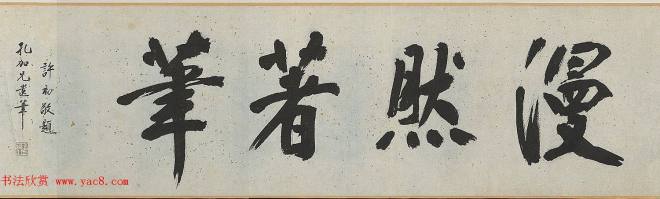 漫然著筆
許初敬題
孔加兄筆
书法欣赏 www.yac8.com